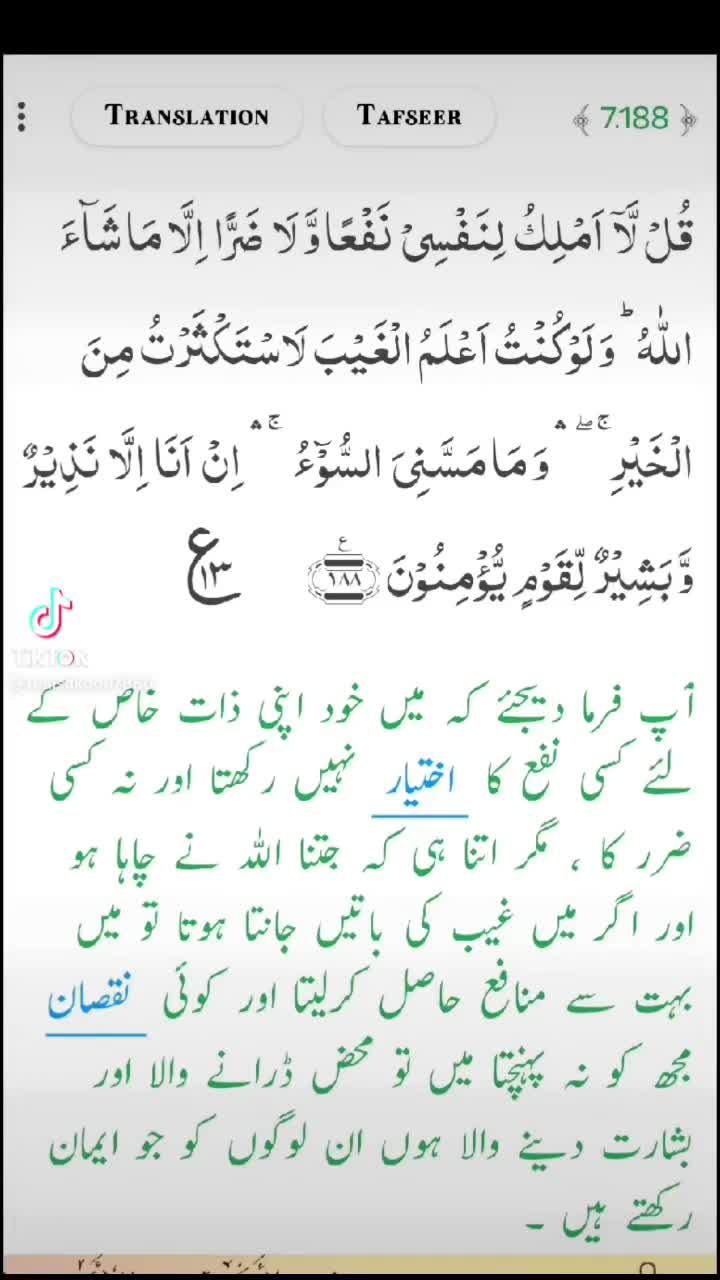 TRANSLATION
TAFSEER
7.188
قُلْ لَّاۤ اَمْلِكُ لِنَفْسِیْ نَفْعًا وَّ لَا ضَرًّا اِلَّا مَا شَآءَ
اللّٰهُ ؕ وَ لَوْ كُنْتُ اَعْلَمُ الْغَیْبَ لَاسْتَكْثَرْتُ مِنَ
الْخَیْرِ ۛۖۚ وَ مَا مَسَّنِیَ السُّوْٓءُ ۛۚ اِنْ اَنَا اِلَّا نَذِیْرٌ
وَّ بَشِیْرٌ لِّقَوْمٍ یُّؤْمِنُوْنَ ۱۸۸ ع ۱۳
TikTok
آپ فرما دیجئے کہ میں خود اپنی ذات خاص کے
لئے کسی نفع کا اختیار نہیں رکھتا اور نہ کسی
ضرر کا ، مگر اتنا ہی کہ جتنا اللہ نے چاہا ہو
اور اگر میں غیب کی باتیں جانتا ہوتا تو میں
بہت سے منافع حاصل کرلیتا اور کوئی نقصان
مجھ کو نہ پہنچتا میں تو محض ڈرانے والا اور
بشارت دینے والا ہوں ان لوگوں کو جو ایمان
رکھتے ہیں ۔